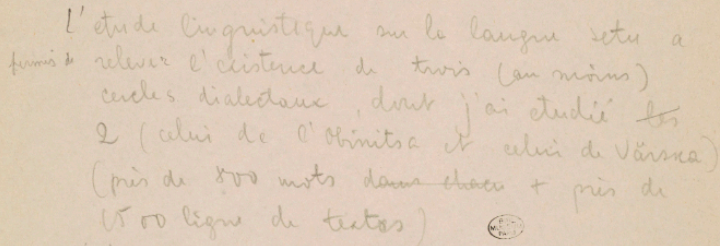 L'etude linguistique sur la langue setu a
permis de relever l'existence de trois (au moins)
cercles dialectaux, dont j'ai etudié les
2 (celui de l'Obinitsa et celui de Värska)
(près de 800 mots dans chacu + près de
1500 ligne de textes)